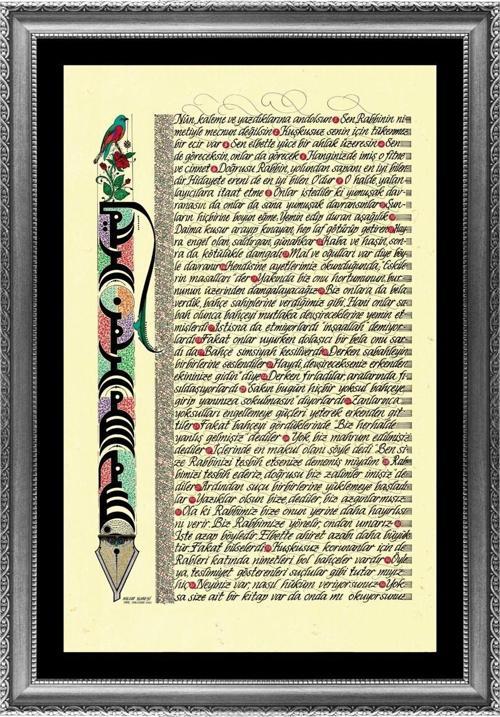 Nûn, kaleme ve yazdıklarına andolsun Sen Rabbinin ni=
metiyle mecnun değilsin Kuşkusuz senin için tükenmez
bir ecir var Sen elbette yüce bir ahlak üzeresin Sen
de göreceksin, onlar da görecek Hanginizde imiş o fitne
ve cinnet Doğrusu Rabbin, yolundan sapanı en iyi bilen
dir. Hidayete ereni de en iyi bilen O'dur O halde, yalan=
layıcılara itaat etme Onlar istediler ki yumuşak dav=
ranasın da onlar da sana yumuşak davransınlar Şun=
ların hiçbirine boyun eğme. Yemin edip duran aşağılık
Daima kusur arayıp kınayan, hep laf götürüp getiren Hay=
ra engel olan, saldırgan, günahkar Kaba ve haşin, son=
ra da kötülükle damgalı Mal ve oğulları var diye böy=
le davranır Kendisine ayetlerimiz okunduğunda, "Eskile=
rin masalları" der Yakında biz onu hortumunun, bur=
nunun üzerinden damgalayacağız Biz onlara da bela
verdik, bahçe sahiplerine verdiğimiz gibi. Hani onlar sa=
bah olunca bahçeyi mutlaka devşireceklerine yemin et=
mişlerdi İstisna da etmiyorlardı "inşaallah" demiyor=
lardı Fakat onlar uyurken dolaşıcı bir bela onu sar=
dı da Bahçe simsiyah kesiliverdi Derken, sabahleyin
birbirlerine seslendiler Haydi, devşirecekseniz erkenden
ekininize gidin" diye Derken fırladılar, aralarında fı=
sıldaşıyorlardı Sakın bugün hiçbir yoksul bahçeye
girip yanınıza sokulmasın" diyorlardı Zanlarınca
yoksulları engellemeye güçleri yeterek erkenden git
tiler Fakat bahçeyi gördüklerinde "Biz herhalde
yanlış gelmişiz" dediler Yok, biz mahrum edilmişiz"
dediler İçlerinde en makul olanı şöyle dedi "Ben si=
ze Rabbinizi tesbih etsenize dememiş miydim Rab=
bimizi tesbih ederiz, doğrusu biz zalimler imişiz" de=
diler Ardından suçu birbirlerine yüklemeye başladı=
lar Yazıklar olsun bize, dediler, biz azgınlarmışız
Ola ki Rabbimiz bize onun yerine daha hayırlısı=
nı verir. Biz Rabbimize yönelir, ondan umarız
İşte azap böyledir. Elbette ahiret azabı daha büyük
tür. Fakat bilselerdi Kuşkusuz korunanlar için de
Rableri katında nimetleri bol bahçeler vardır Öyle
ya, teslimiyet gösterenleri suçlular gibi tutar mıyız
hiç Neyiniz var, nasıl hüküm veriyorsunuz Yok=
sa size ait bir kitap var da onda mı okuyorsunuz